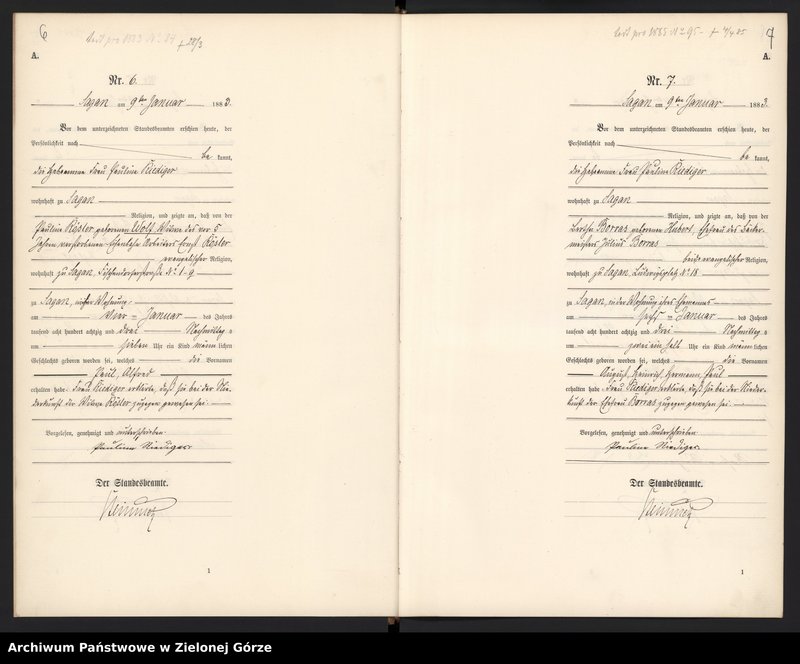 6
tot pro 1883 Nr. 84
+ 28/3
A.
Nr. 6.
Sagan am 9ten Januar 1883.
Vor dem unterzeichneten Standesbeamten erschien heute, der
Persönlichkeit nach
be kannt,
die Hebeamme Frau Pauline Riediger
wohnhaft zu Sagan
Religion, und zeigte an, daß von der
Pauline Köster geborenen Wolf, Witwe des vor 5
Jahren verstorbenen Arbeiters Ernst Köster
evangelischer Religion,
wohnhaft zu Sagan,
zu Sagan, in ihrer Wohnung
am vier = Januar des Jahres
tausend acht hundert achtzig und drei Nachmittag s
um sieben Uhr ein Kind männ lichen
Geschlechts geboren worden sei, welches die Vornamen
Paul, Alfred
erhalten habe. Frau Riediger erklärte, daß sie bei der Nie-
derkunft der Witwe Köster zugegen gewesen sei.
Vorgelesen, genehmigt und unterschrieben
Pauline Riediger
Der Standesbeamte.
1
7
tot pro 1885 Nr. 95 - + 4/4.85
A.
Nr. 7.
Sagan am 9ten Januar 1883.
Vor dem unterzeichneten Standesbeamten erschien heute, der
Persönlichkeit nach
be kannt,
die Hebeamme Frau Pauline Riediger
wohnhaft zu Sagan
Religion, und zeigte an, daß von der
Borras geborenen Hubert, Ehefrau des
meisters Julius Borras
beide evangelischer Religion,
wohnhaft zu Sagan Ludwigsplatz Nr. 18
zu Sagan, in der Wohnung ihres Ehemannes
am sechs = Januar des Jahres
tausend acht hundert achtzig und drei Nachmittag s
um zwei ein halb Uhr ein Kind männ lichen
Geschlechts geboren worden sei, welches die Vornamen
August, Heinrich, Hermann, Paul
erhalten habe. Frau Riediger erklärte, daß sie bei der Nieder-
kunft der Ehefrau Borras zugegen gewesen sei.
Vorgelesen, genehmigt und unterschrieben
Pauline Riediger
Der Standesbeamte.
1
Archiwum Państwowe w Zielonej Górze